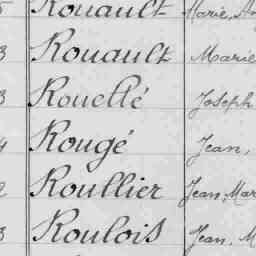 Rouault Marie,
3 Rouault Marie
3 Rouellé Joseph
4 Rougé Jean,
2 Roullier Jean, Mar
3 Roulois Jean, M